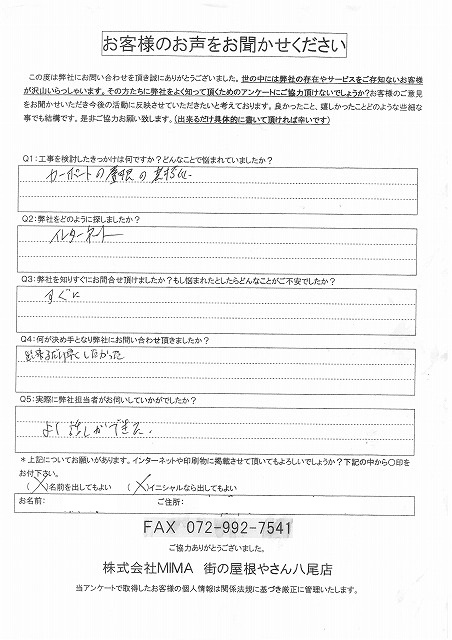 お客様のお声をお聞かせください
この度は弊社にお問い合わせを頂き誠にありがとうございました。世の中には弊社の存在やサービスをご存知ないお客様
が沢山いらっしゃいます。その方たちに弊社をよく知って頂くためのアンケートにご協力頂けないでしょうか?お客様のご意見
をお聞かせいただき今後の活動に反映させていただきたいと考えております。良かったこと、嬉しかったことどのような些細な
事でも結構です。是非ご協力お願い致します。(出来るだけ具体的に書いて頂ければ幸いです)
Q1:工事を検討したきっかけは何ですか?どんなことで悩まれていましたか?
カーポートの屋根の
Q2:弊社をどのように探しましたか?
インターネット
Q3:弊社を知りすぐにお問合せ頂けましたか?もし悩まれたとしたらどんなことがご不安でしたか?
すぐに
Q4:何が決め手となり弊社にお問い合わせ頂きましたか?
出来るだけ早くしたかった
Q5:実際に弊社担当者がお伺いしていかがでしたか?
よく話しができた。
*上記についてお願いがあります。インターネットや印刷物に掲載させて頂いてもよろしいでしょうか?下記の中から〇印を
お付下さい。
( )名前を出してもよい ( )イニシャルなら出してもよい
お名前: ご住所:
FAX 072-992-7541
ご協力ありがとうございました。
株式会社MIMA 街の屋根やさん八尾店
当アンケートで取得したお客様の個人情報は関係法規に基づき厳正に管理いたします。